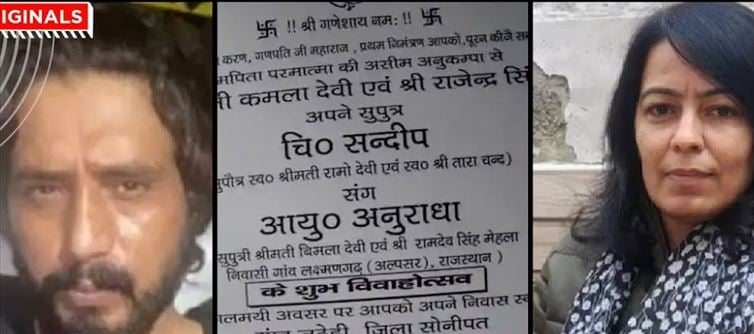 IGINALS
卐 !! श्री गणेशाय नमः !! 卐
करण, गणपति जी महाराज, प्रथम निमंत्रण आपको, पूरन कीजै स
मपिता परमात्मा की असीम अनुकम्पा से
ी कमला देवी एवं श्री राजेन्द्र सिं
अपने सुपुत्र
चि० सन्दीप
सुपौत्र स्व० श्रीमती रामो देवी एवं स्व० श्री तारा चन्द)
संग
आयु० अनुराधा
सुपुत्री श्रीमती बिमला देवी एवं श्री रामदेव सिंह मेहला
निवासी गांव लक्ष्मणगढ़ (अल्पसर), राजस्थान)
के शुभ विवाहोत्सव
लमयी अवसर पर आपको अपने निवास स्
जिला सोनीपत